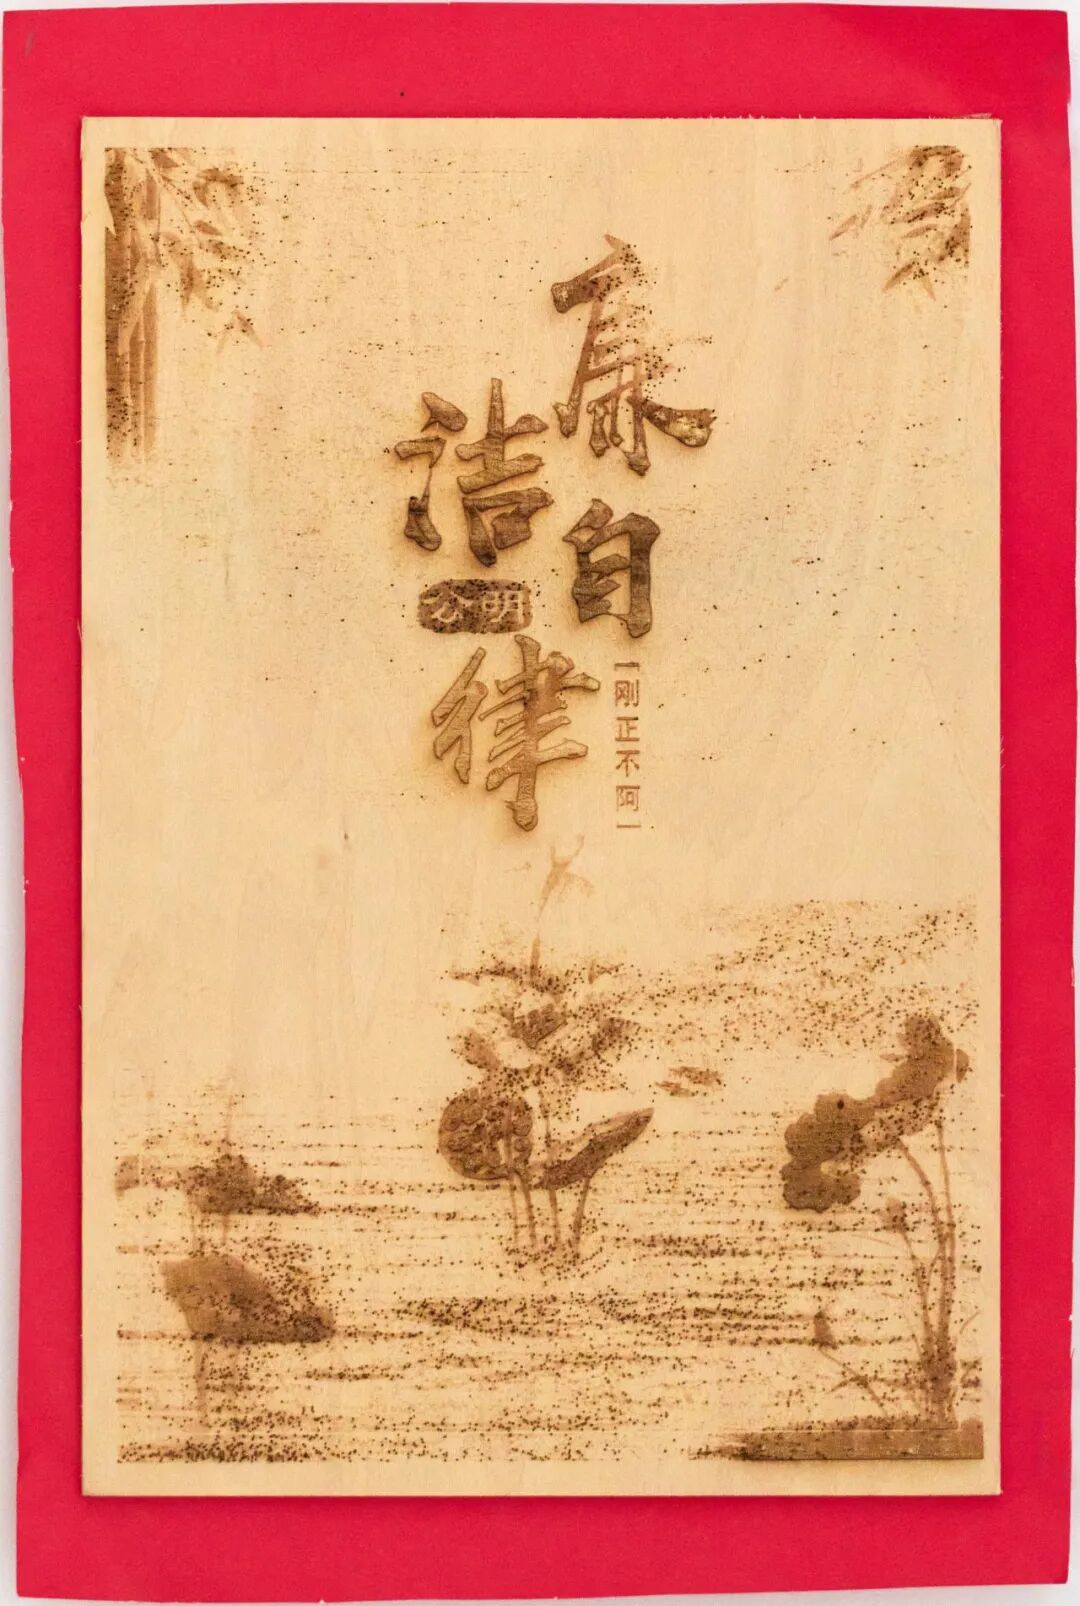 廉
洁
自
律
公明
刚正不阿